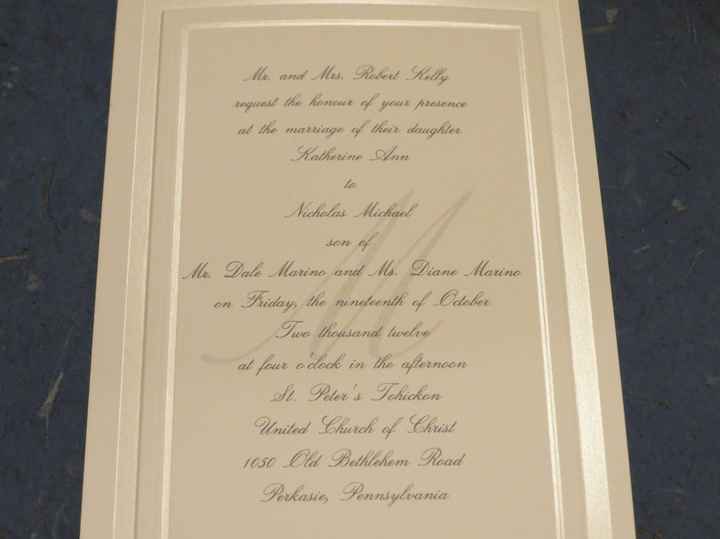 Mr. and Mrs. Robert Kelly
request the honour of your presence
at the marriage of their daughter
Katherine Ann
to
Nicholas Michael
son of
Mr. Dale Marino and Ms. Diane Marino
on Friday, the nineteenth of October
Two thousand twelve
at four o'clock in the afternoon
St. Peter's Tohickon
United Church of Christ
1050 Old Bethlehem Road
Perkasie, Pennsylvania
M